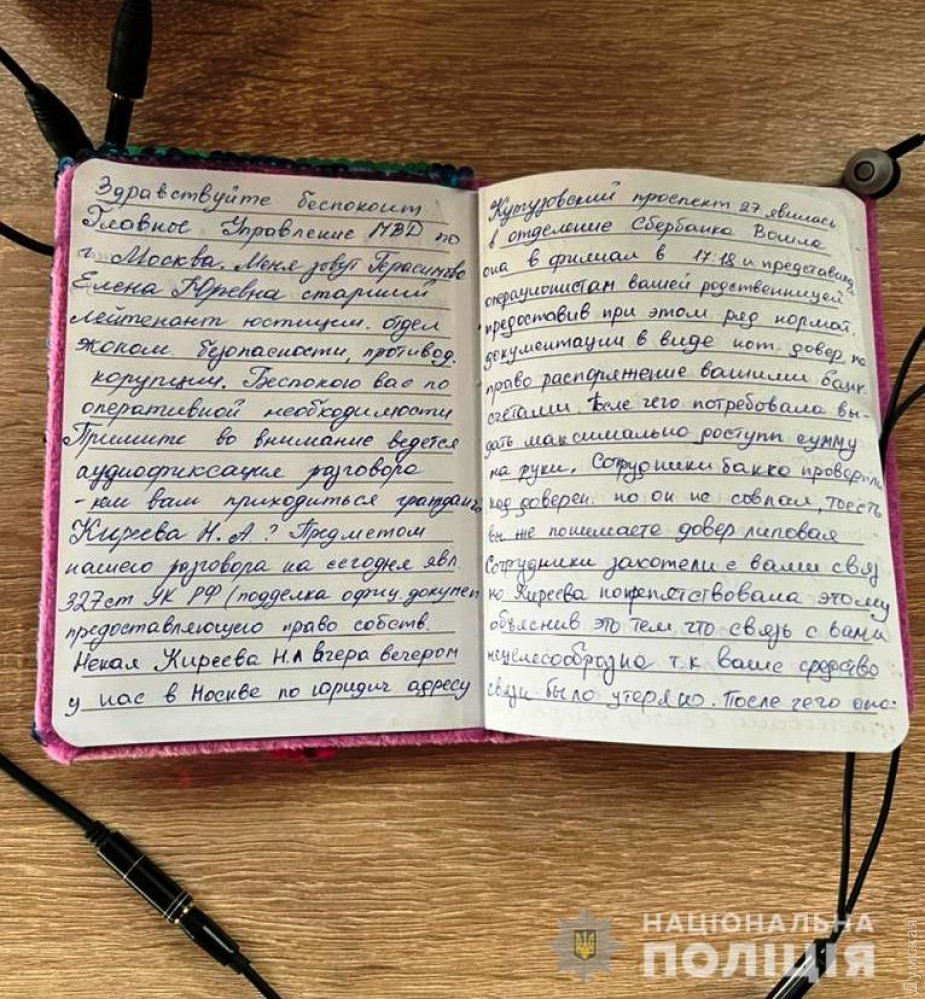 Здравствуйте беспокоит
Главное Управление МВД по
г. Москва. Меня зовут Герасимова
Елена Юревна старший
лейтенант юстиции. отдел
эконом. безопасности, противод.
корупции. Беспокою вас по
оперативной необходимости
Примите во внимание ведется
аудиофиксация разговора
- кем вам приходиться
Киреева Н. А? Предметом
нашего разговора на сегодня явл.
327ст УК РФ (подделка офиц. докумен
предоставляющего право собств.
Некая Киреева Н.А Вчера вечером
у нас в Москве по юридич адресу
Кутузовский проспект 27 явилась
в отделение Сбербанка Вошла
она в филиал в 17.18 и
операционистам вашей родственницей
предоставив при этом ряд нормат.
документации в виде нот. довер на
право распоряжение вашими банк
счетами. После чего потребовала вы-
дать максимально доступн сумму
на руки. Сотрудники банка проверили
код доверен. но он не совпал, тоесть
вы же понимаете довер липовая
Сотрудники захотели с вами связ
но Киреева попрепятствовала этому
объяснив это тем, что связь с вами
нецелесообразна т.к ваше средство
связи было утеряно. После чего она:
НАЦІОНАЛЬНА
ПОЛІЦІЯ
Думская